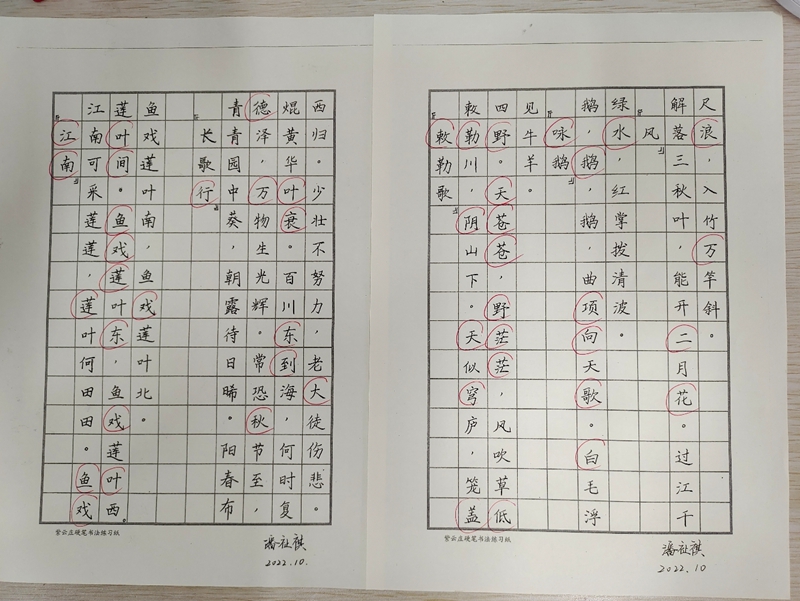 江南
江南可采莲，莲叶何田田。鱼戏
莲叶间。鱼戏莲叶东，鱼戏莲叶西。
鱼戏莲叶南，鱼戏莲叶北。
长歌行
青青园中葵，朝露待日晞。阳春布
德泽，万物生光辉。常恐秋节至，
焜黄华叶衰。百川东到海，何时复
西归。少壮不努力，老大徒伤悲。
紫云庄硬笔书法练习纸
潘社祺
2022.10.
敕勒歌
敕勒川，阴山下。天似穹庐，笼盖
四野。天苍苍，野茫茫，风吹草低
见牛羊。
咏鹅
鹅，鹅，鹅，曲项向天歌。白毛浮
绿水，红掌拨清波。
风
解落三秋叶，能开二月花。过江千
尺浪，入竹万竿斜。
紫云庄硬笔书法练习纸
潘社祺
2022.10